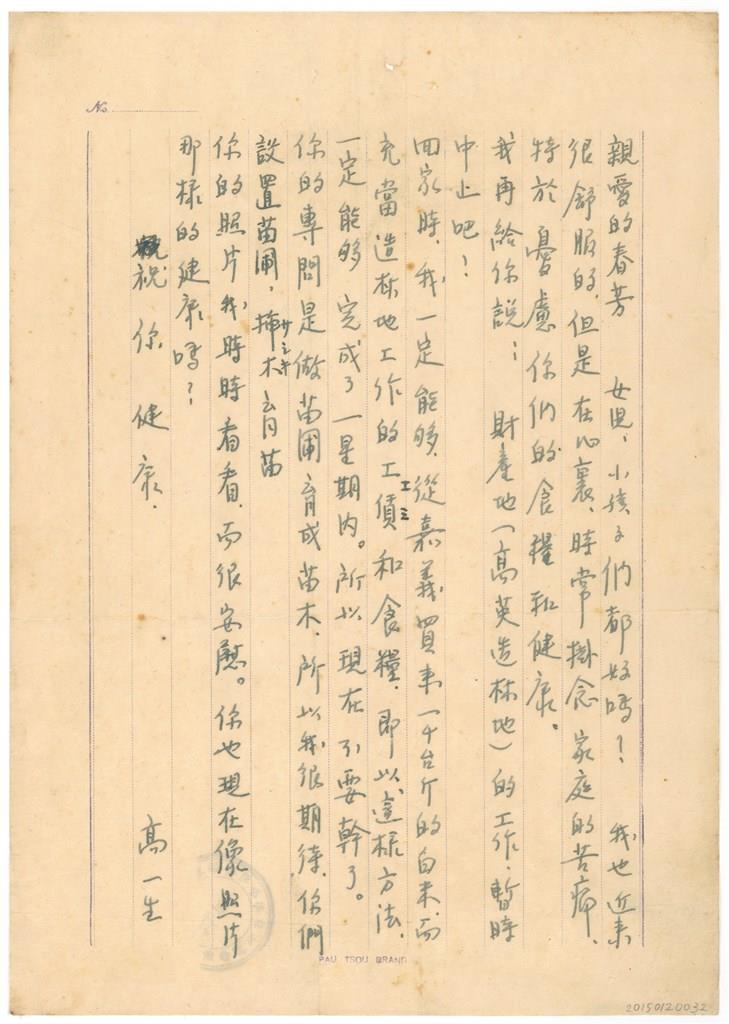 No.
親愛的春芳 女児、小孩子們都好嗎? 我也近来
很舒服的、但是在心裏、時常掛念家庭的苦痛、
特於憂慮你們的食糧和健康。
我再給你說: 財產地(高英造林地)的工作、暫時
中止吧?
回家時、我一定能够、從嘉義買来一千台斤的白米、而
充當造林地工作的工債和食糧、即以這樣方法、
一定能够 完成了一星期内。所以現在不要幹了。
你的專問是做苗圃育成苗木、所以我很期待、你們
設置苗圃,揷木育苗
你的照片我時時看看、而很安慰。你也現在像照片
那樣的健康嗎?
祝 你 健 康、
高一生
PAU TSOU BRAND
20150120032